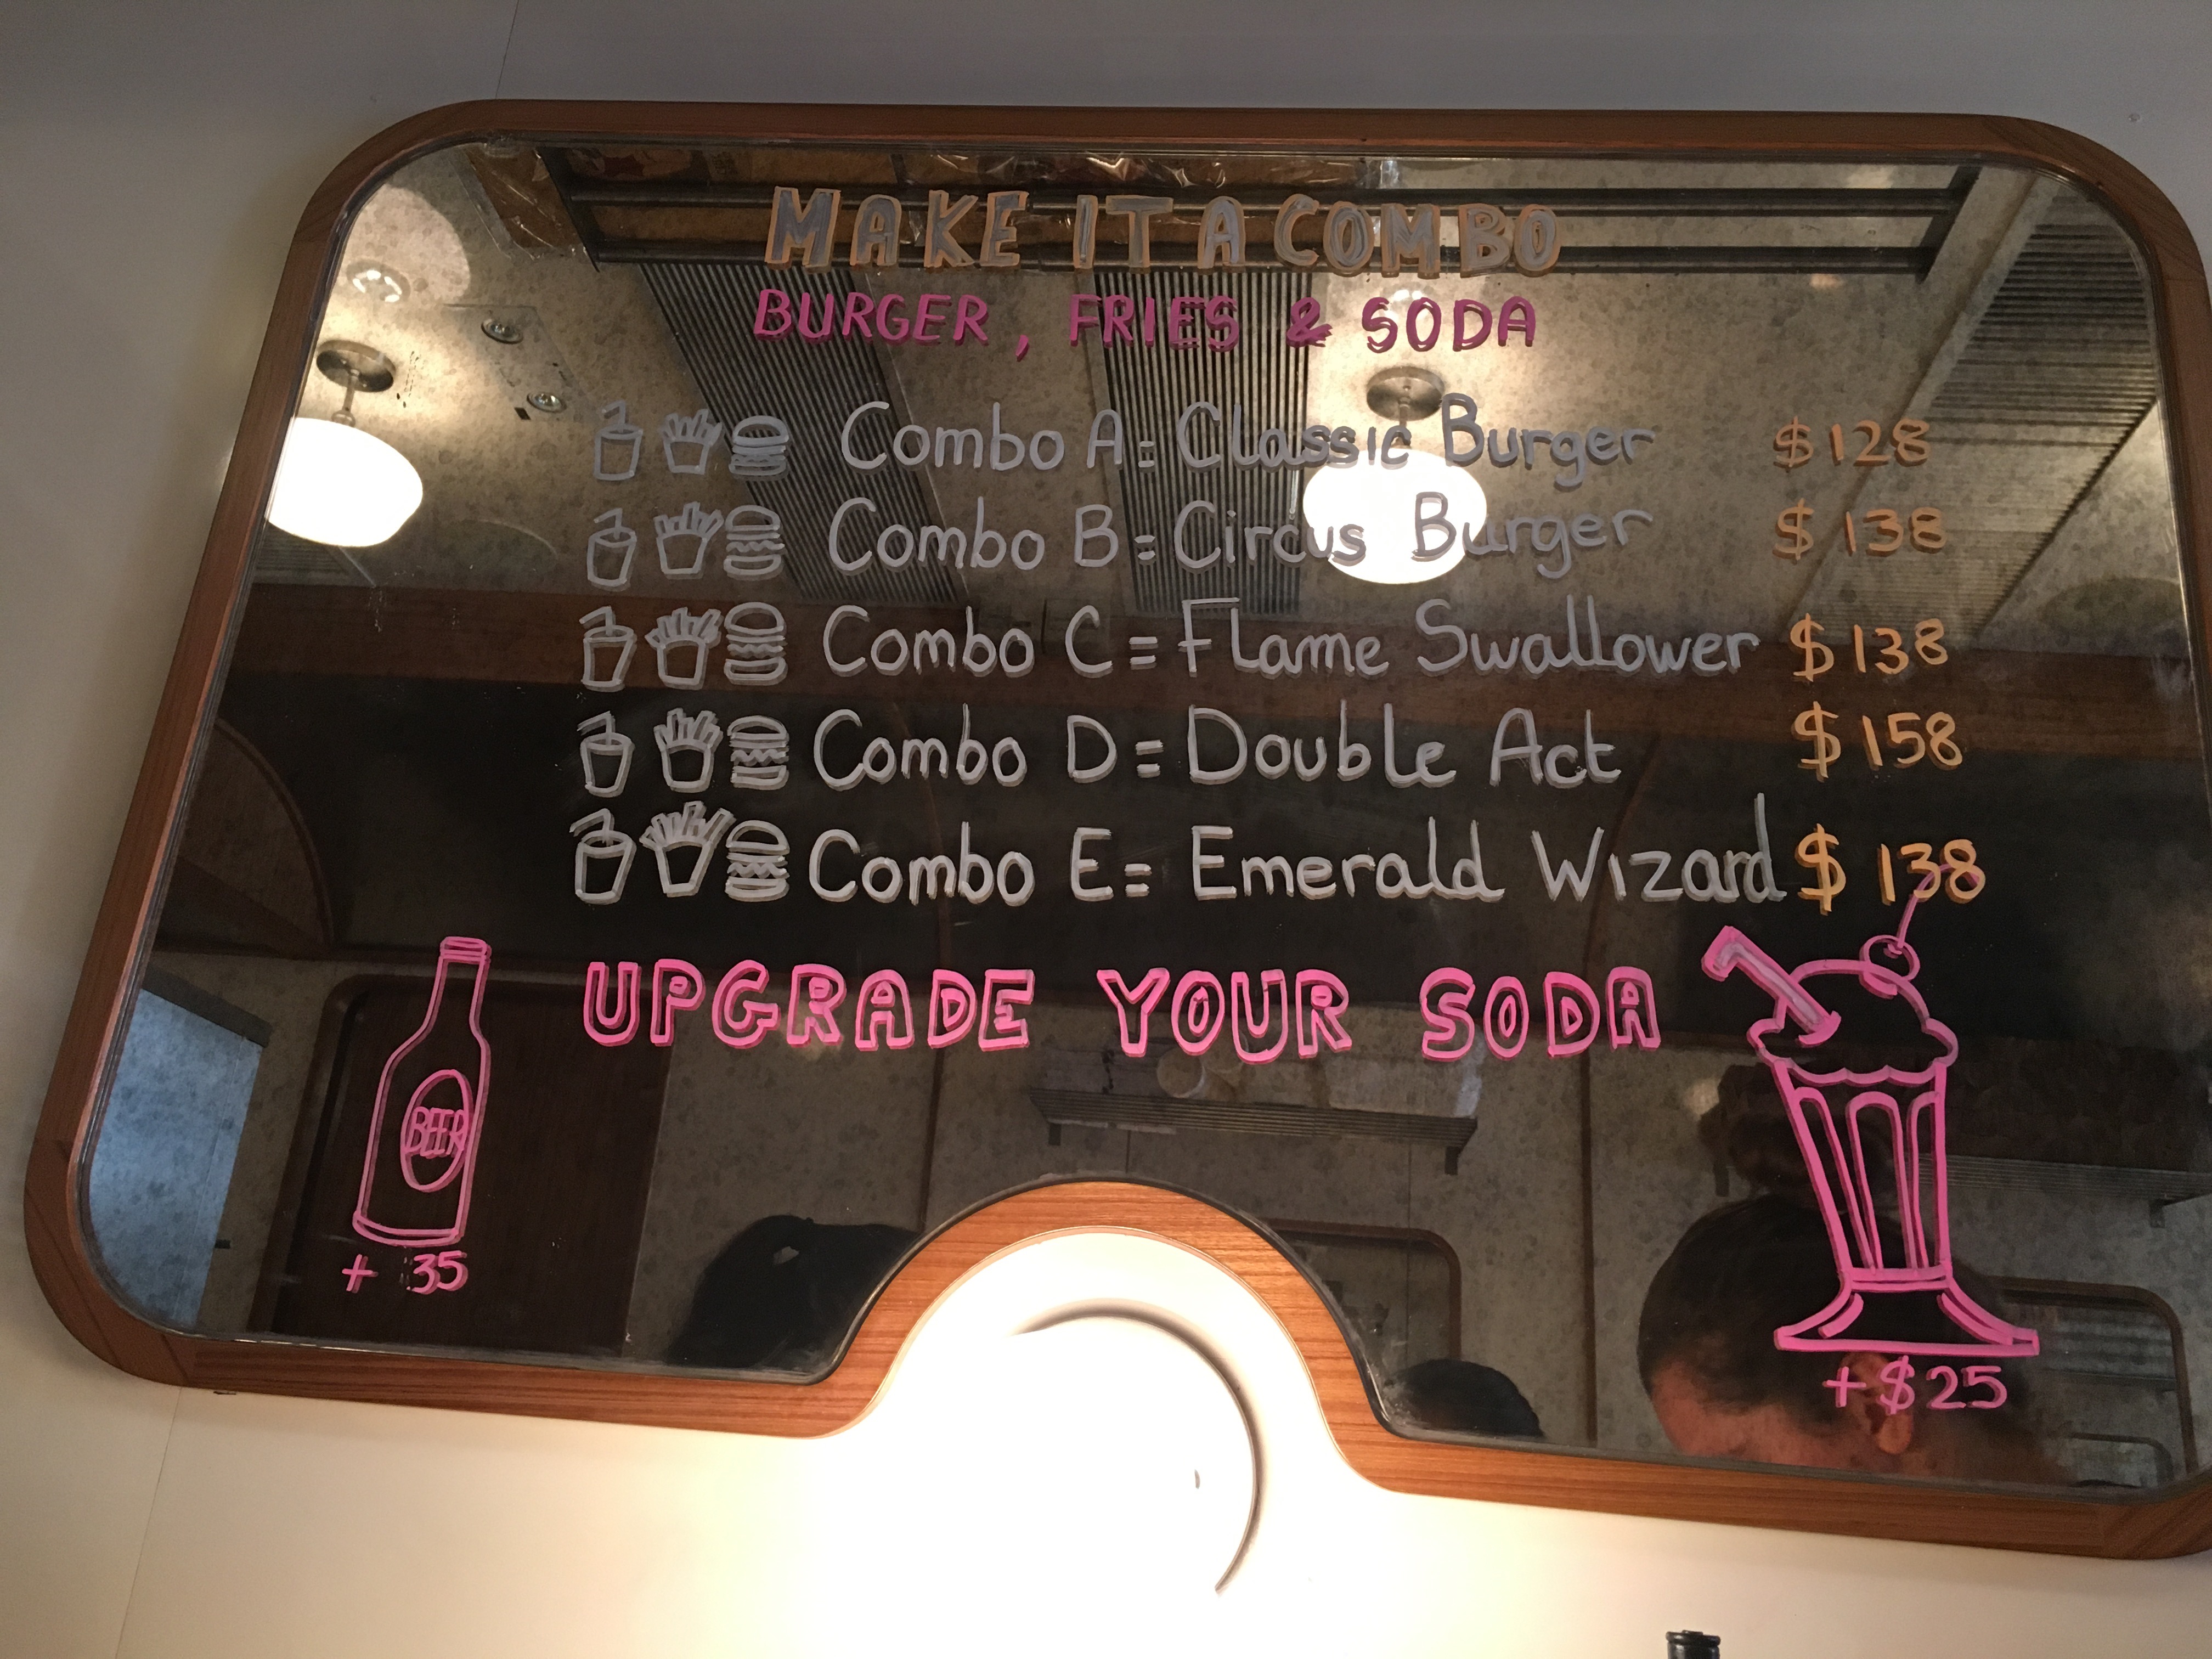 MAKE IT A COMBO
BURGER, FRIES & SODA
Combo A = Classic Burger $128
Combo B = Circus Burger $138
Combo C = Flame Swallower $138
Combo D = Double Act $158
Combo E = Emerald Wizard $138
UPGRADE YOUR SODA
BEER
+ 35
+$25